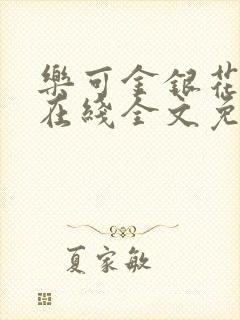 樂可金銀花
在綫全文免
夏家敏